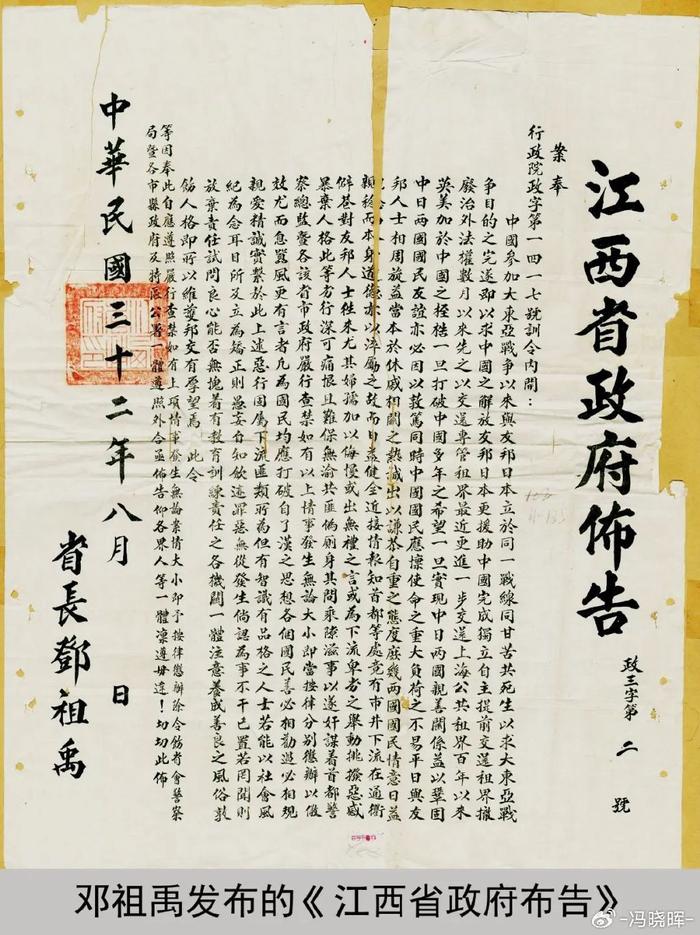 江西省政府佈告
政三字第二號
案奉
行政院政字第一四一七號訓令內開：
中國參加大東亞戰爭以來與友邦日本立於同一戰線同甘苦共死生以求大東亞戰
爭目的之完遂即以求中國之解放友邦日本更援助中國完成獨立自主提前交還租界撤
廢治外法權數月以來先之以交還專管租界最近更進一步交還上海公共租界百年以來
英美加於中國之桎梏一旦打破中國多年之希望一旦實現中日两國親善關係益以鞏固
中日两國國民友誼亦必因以敦篤同時中國國民應懍使命之重大負荷之不易平日與友
邦人士相周旋益當本於休戚相關之熱誠出以謙恭自重之態度庶幾两國國民情意日益
親而本身道德亦以淬厲之故而日益健全近接情報知首都等處竟有市井下流在通衢
僻巷對友邦人士往來尤其婦孺加以侮慢或出無禮之言或為下流卑劣之舉動挑撥惡感
暴棄人格此等劣行深可痛恨且難保無渝共匪偽廁身其間乘隙滋事以遂奸謀着首都警
察總監暨各該省市政府嚴行查禁如有以上情事發生無論大小即當按律分別懲辦以儆
效尤而息囂風更有言者凡為國民均應打破自了漢之思想各個國民善必相勸過必相規
親愛精誠實繫於此上述惡行固屬下流匪類所為但有智識有品格之人士若能以社會風
紀為念耳目所及立為矯正則愚妄自知斂迹罪惡無從發生倘認為事不干己置若罔聞則
放棄責任試問良心能否無愧着有教育訓練責任之各機關一體注意養成善良之風俗敦
飭人格即所以維護邦交有厚望焉此令
等因奉此自應遵照嚴行查禁如有上項情事發生無論案情大小即予按律懲辦除令飭省會警察
局暨各市縣政府及特派公署一體遵照外合亟佈告仰各界人等一體凜遵毋違！切切此佈
中華民國三十二年八月 日
省長鄧祖禹
邓祖禹发布的《江西省政府布告》
-冯晓晖-